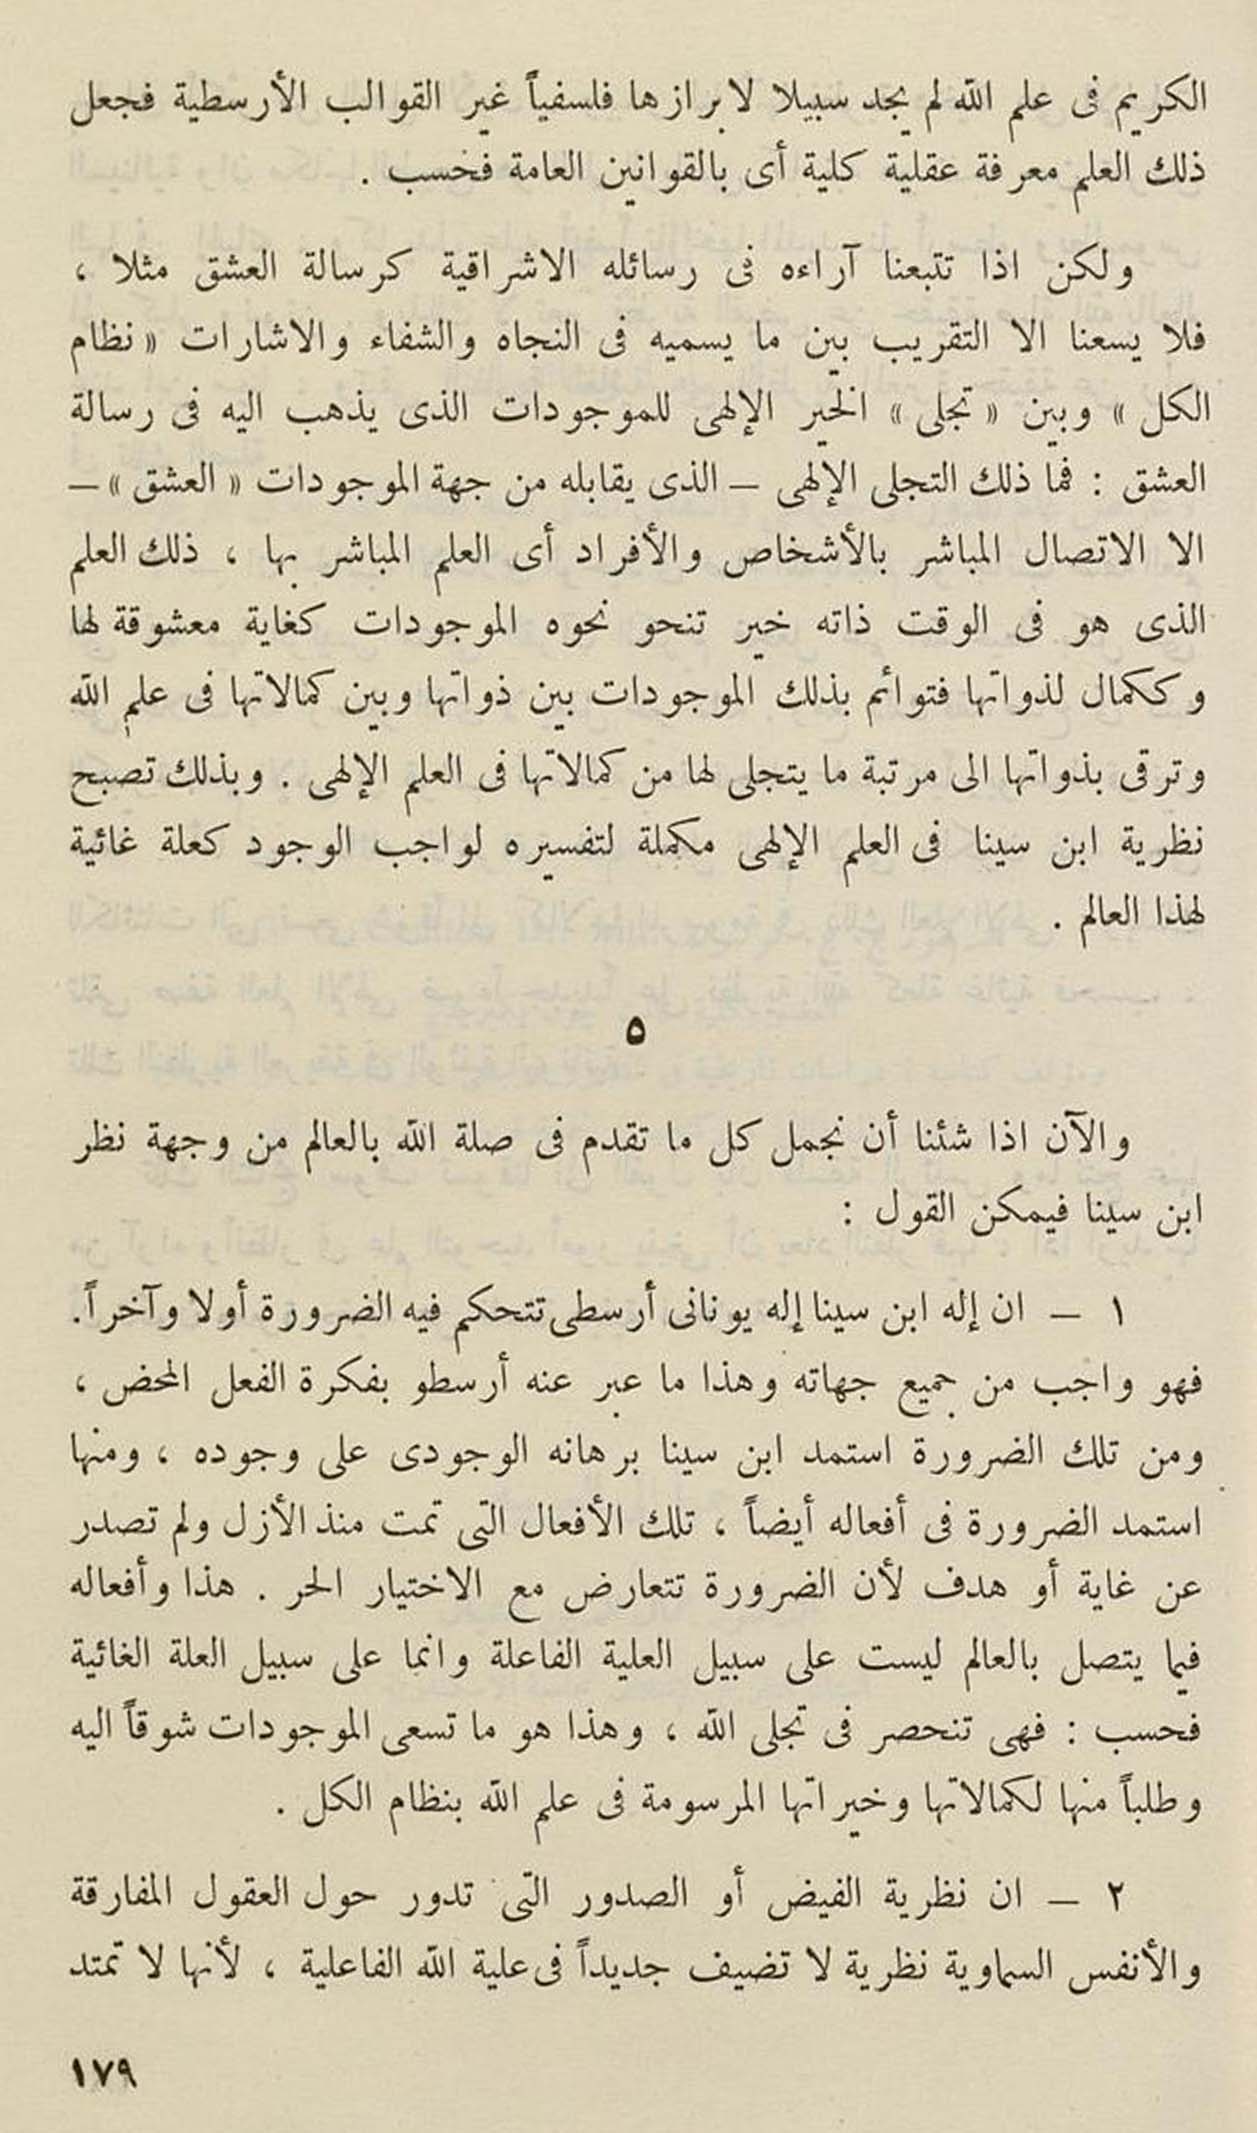 الكريم فى علم الله لم يجد سبيلا لابرازها فلسفياً غير القوالب الأرسطية فجعل
ذلك العلم معرفة عقلية كلية أى بالقوانين العامة فحسب .
ولكن اذا تتبعنا آراءه فى رسائله الاشراقية كرسالة العشق مثلا ،
فلا يسعنا الا التقريب بين ما يسميه فى النجاه والشفاء والاشارات « نظام
الكل » وبين « تجلى » الخير الإلهى للموجودات الذى يذهب اليه فى رسالة
العشق : فما ذلك التجلى الإلهى – الذى يقابله من جهة الموجودات « العشق » –
الا الاتصال المباشر بالأشخاص والأفراد أى العلم المباشر بها ، ذلك العلم
الذى هو فى الوقت ذاته خير تنحو نحوه الموجودات كغاية معشوقة لها
وككمال لذواتها فتوائم بذلك الموجودات بين ذواتها وبين كمالاتها فى علم الله
وترقى بذواتها الى مرتبة ما يتجلى لها من كمالاتها فى العلم الإلهى . وبذلك تصبح
نظرية ابن سينا فى العلم الإلهى مكملة لتفسيره لواجب الوجود كعلة غائية
لهذا العالم .
٥
والآن اذا شئنا أن نجمل كل ما تقدم فى صلة الله بالعالم من وجهة نظر
ابن سينا فيمكن القول :
١ – ان إله ابن سينا إله يونانى أرسطى تتحكم فيه الضرورة أولا وآخراً.
فهو واجب من جميع جهاته وهذا ما عبر عنه أرسطو بفكرة الفعل المحض ،
ومن تلك الضرورة استمد ابن سينا برهانه الوجودى على وجوده ، ومنها
استمد الضرورة فى أفعاله أيضاً ، تلك الأفعال التى تمت منذ الأزل ولم تصدر
عن غاية أو هدف لأن الضرورة تتعارض مع الاختيار الحر . هذا وأفعاله
فيما يتصل بالعالم ليست على سبيل العلية الفاعلة وانما على سبيل العلة الغائية
فحسب : فهى تنحصر فى تجلى الله ، وهذا هو ما تسعى الموجودات شوقاً اليه
وطلباً منها لكمالاتها وخيراتها المرسومة فى علم الله بنظام الكل .
٢ – ان نظرية الفيض أو الصدور التى تدور حول العقول المفارقة
والأنفس السماوية نظرية لا تضيف جديداً فى علية الله الفاعلية ، لأنها لا تمتد
١٧٩